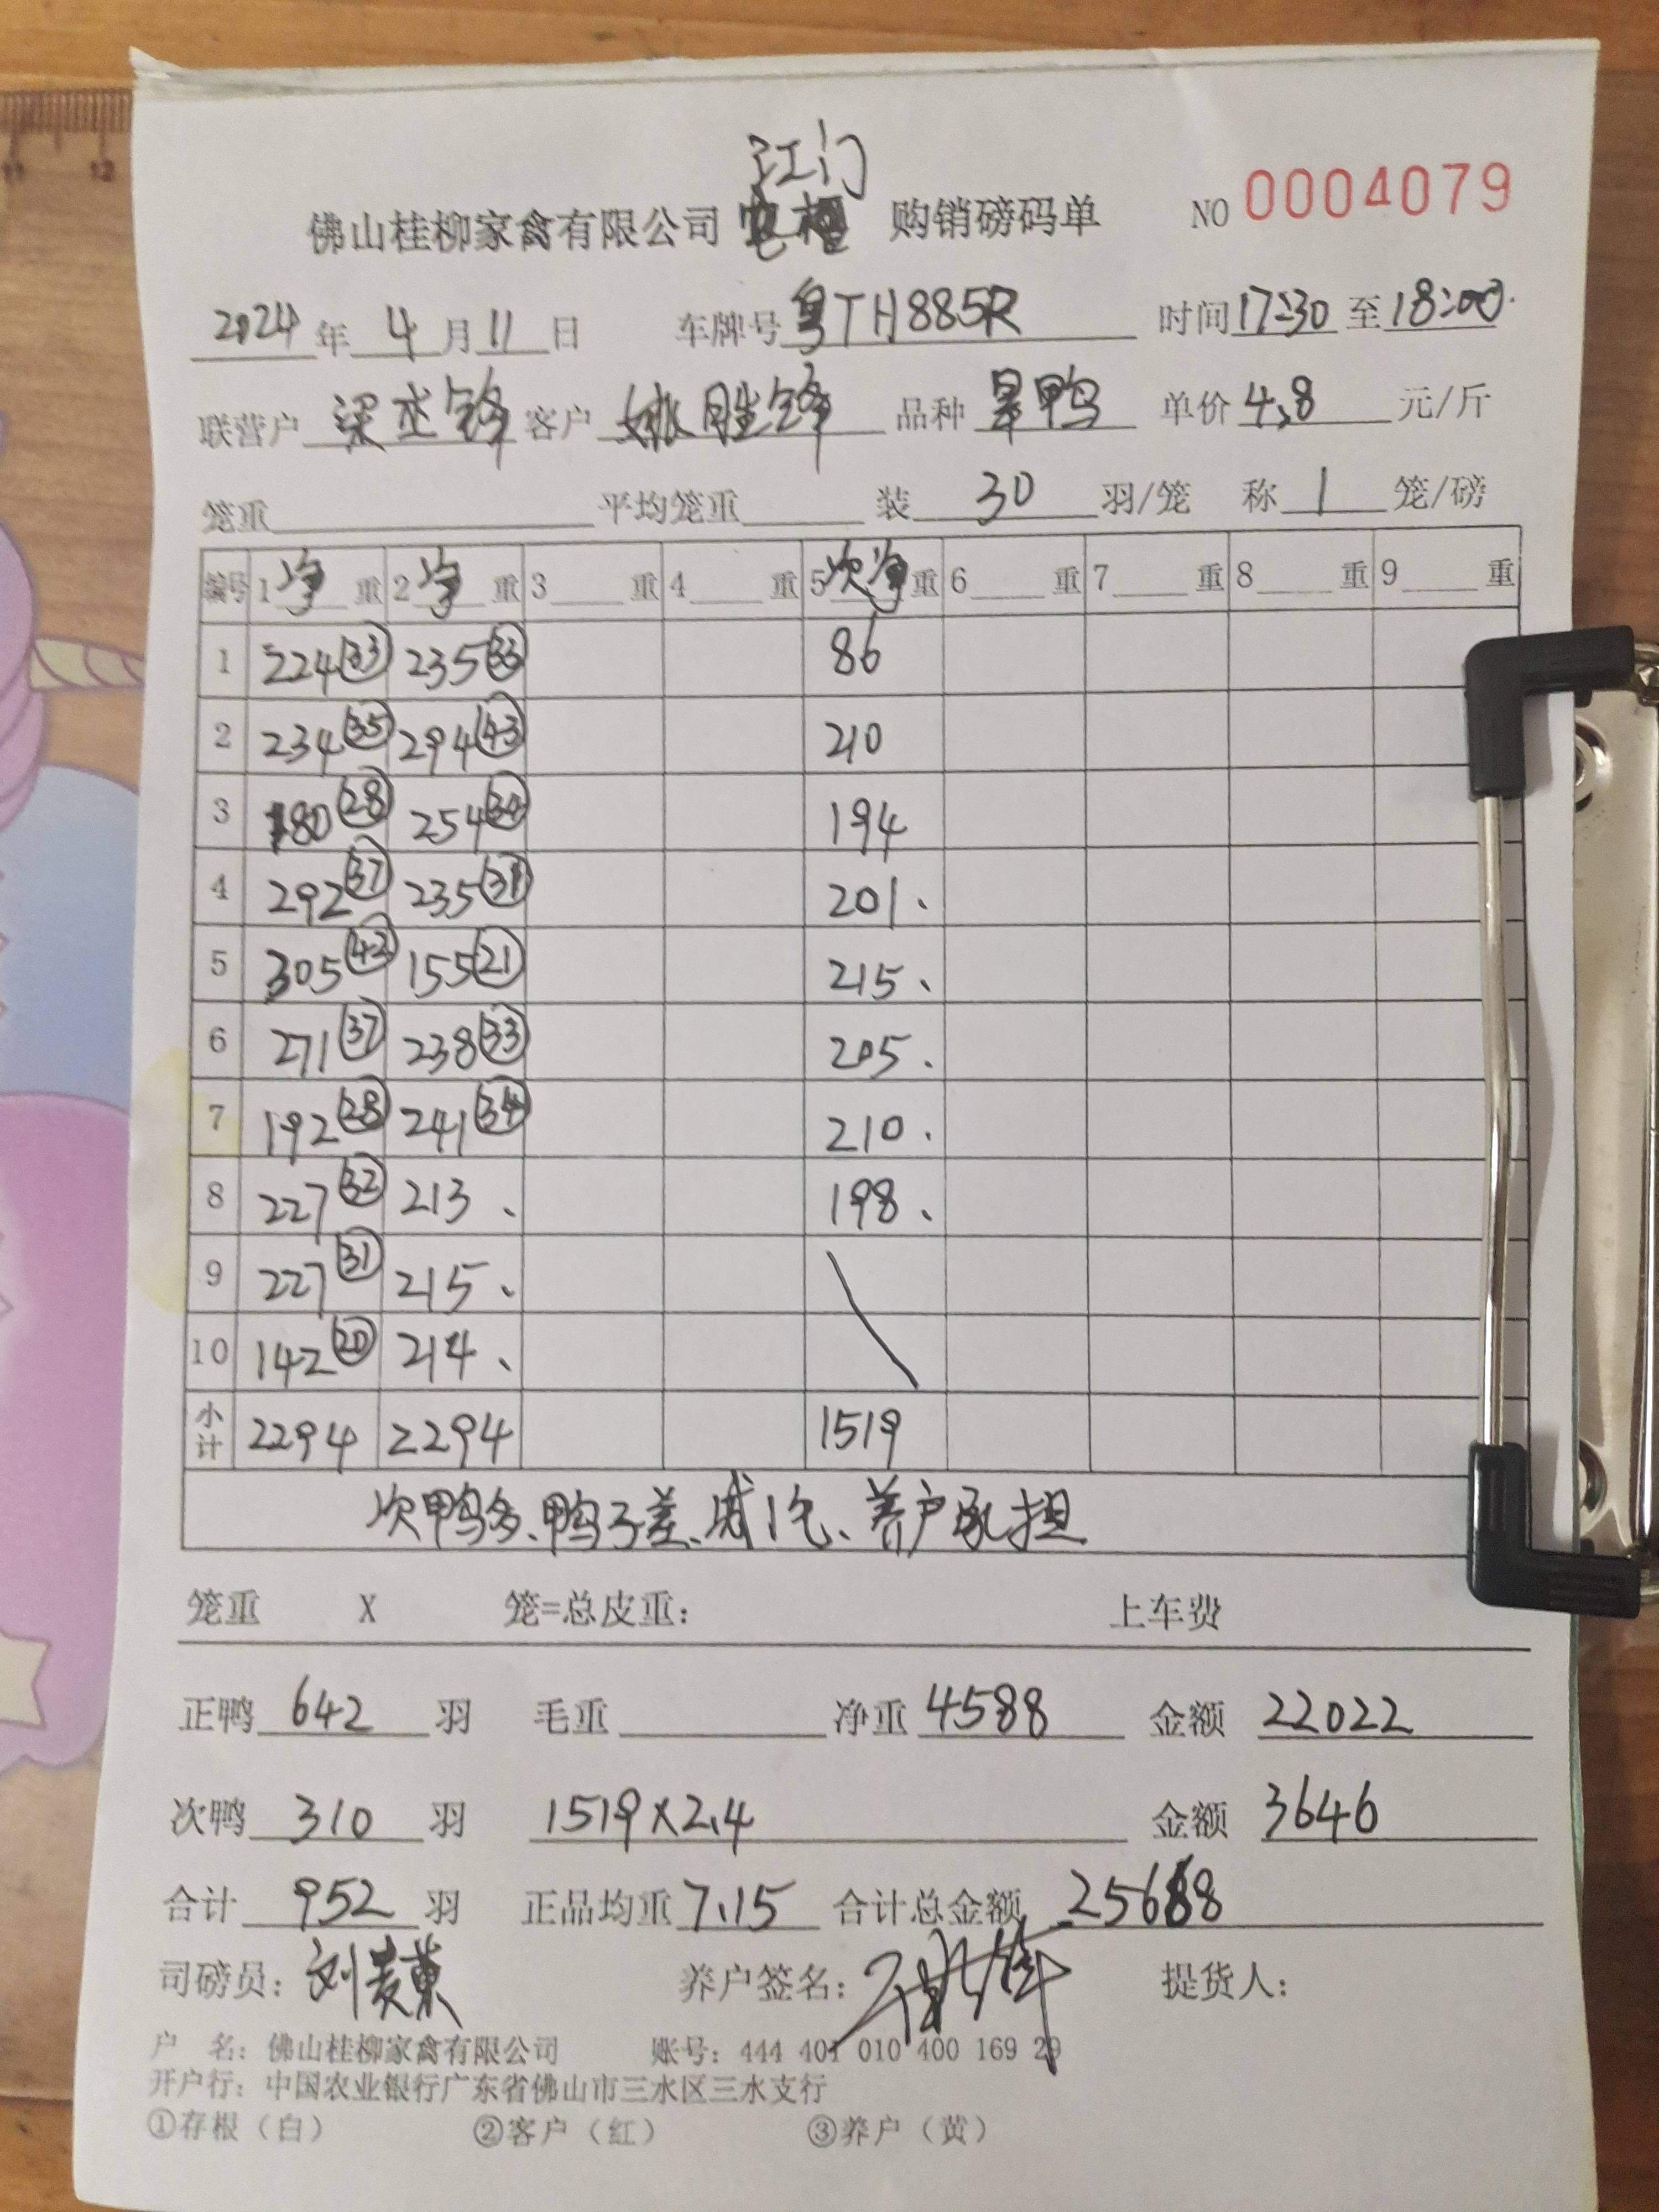 11 12
江门
佛山桂柳家禽有限公司 购销磅码单 NO 0004079
2024年4月11日 车牌号粤TH885R 时间17:30至18:00
联营户 梁 锋 客户 姚胜锋 品种 旱鸭 单价4.8元/斤
笼重 平均笼重 装30羽/笼 称1笼/磅
编号 1净重 2净重 3重 4重 5次净重 6重 7重 8重 9重
1 224 33 235 33 86
2 234 35 294 43 210
3 180 28 254 194
4 292 37 235 31 201.
5 305 43 155 21 215.
6 271 37 238 33 205.
7 192 28 241 34 210.
8 227 32 213. 198.
9 227 31 215.
10 142 20 214.
小计 2294 2294 1519
次鸭多、鸭子差、减1毛、养户承担
笼重 X 笼=总皮重: 上车费
正鸭642羽 毛重 净重4588 金额22022
次鸭310羽 1519×2.4 金额3646
合计952羽 正品均重7.15 合计总金额25668
司磅员: 刘 养户签名: 提货人:
户 名: 佛山桂柳家禽有限公司 账号: 444 401 010 400 169 29
开户行: 中国农业银行广东省佛山市三水区三水支行
①存根（白） ②客户（红） ③养户（黄）